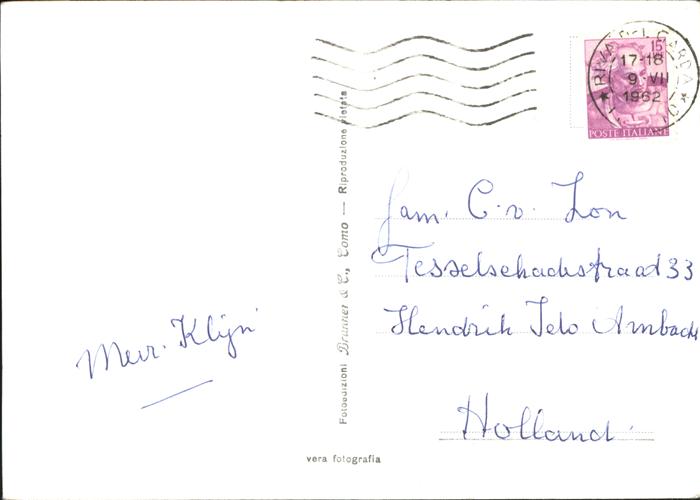 RIVA DEL GARDA
17-18
9·VII
1962
15
POSTE ITALIANE
Fotoedizioni Brunner & C., Como — Riproduzione vietata
Fam. C. v. Zon
Tesselschadestraat 33
Hendrik Ido Ambacht
Holland.
Mevr. Klijn
vera fotografia